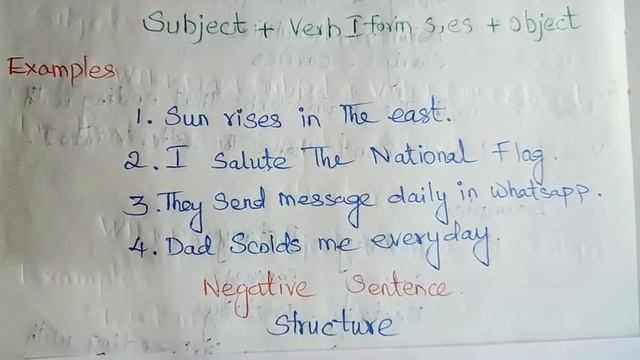 Subject + Verb I form s,es + Object
Examples
1. Sun rises in The east.
2. I Salute The National Flag.
3. They Send message daily in whatsapp.
4. Dad Scolds me everyday.
Negative Sentence.
Structure